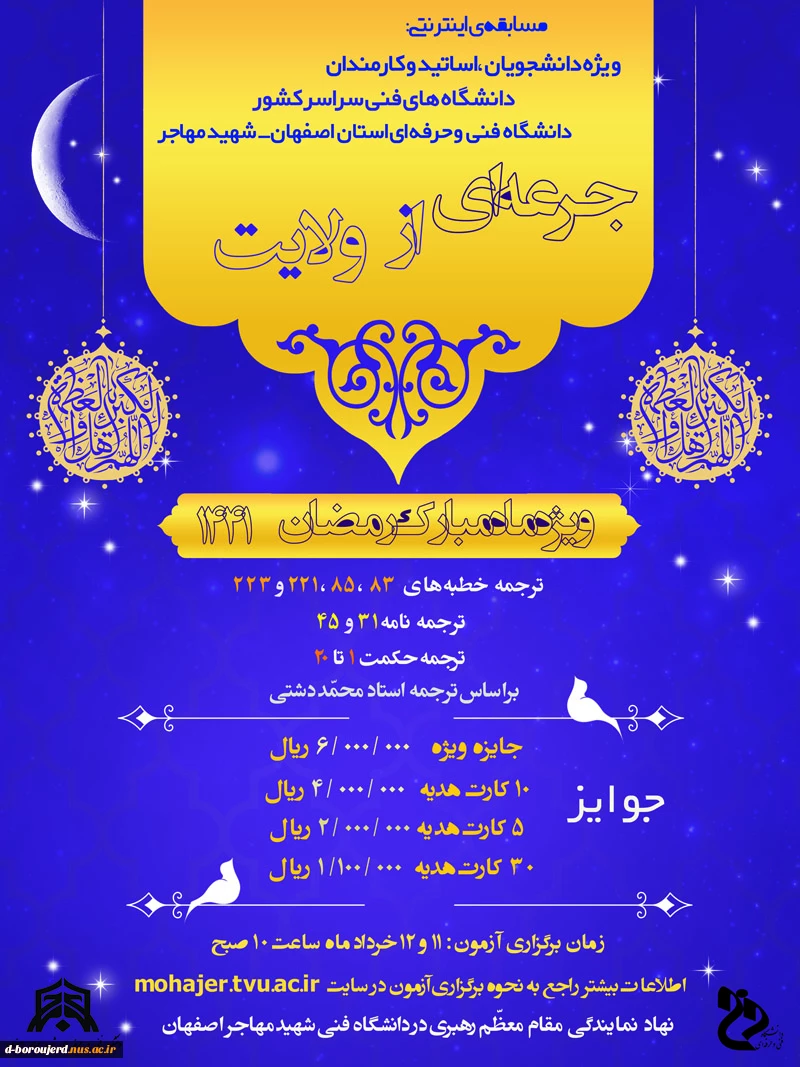 مسابقه‌ی اینترنتی:
ویژه دانشجویان ،اساتید و کارمندان
دانشگاه های فنی سراسر کشور
دانشگاه فنی و حرفه ای استان اصفهان_ شهید مهاجر
جرعه‌ای از ولایت
ویژه ماه مبارک رمضان ۱۴۴۱
ترجمه خطبه های ۸۳ ،۸۵ ،۲۲۱ و ۲۲۳
ترجمه نامه ۳۱ و ۴۵
ترجمه حکمت ۱ تا ۲۰
براساس ترجمه استاد محمّد دشتی
جوایز
جایزه ویژه ۶/۰۰۰/۰۰۰ ریال
۱۰ کارت هدیه ۴/۰۰۰/۰۰۰ ریال
۵ کارت هدیه ۲/۰۰۰/۰۰۰ ریال
۳۰ کارت هدیه ۱/۱۰۰/۰۰۰ ریال
زمان برگزاری آزمون : ۱۱ و ۱۲ خرداد ماه ساعت ۱۰ صبح
اطلاعات بیشتر راجع به نحوه برگزاری آزمون در سایت mohajer.tvu.ac.ir
نهاد نمایندگی مقام معظّم رهبری در دانشگاه فنی شهید مهاجر اصفهان
d-boroujerd.nus.ac.ir